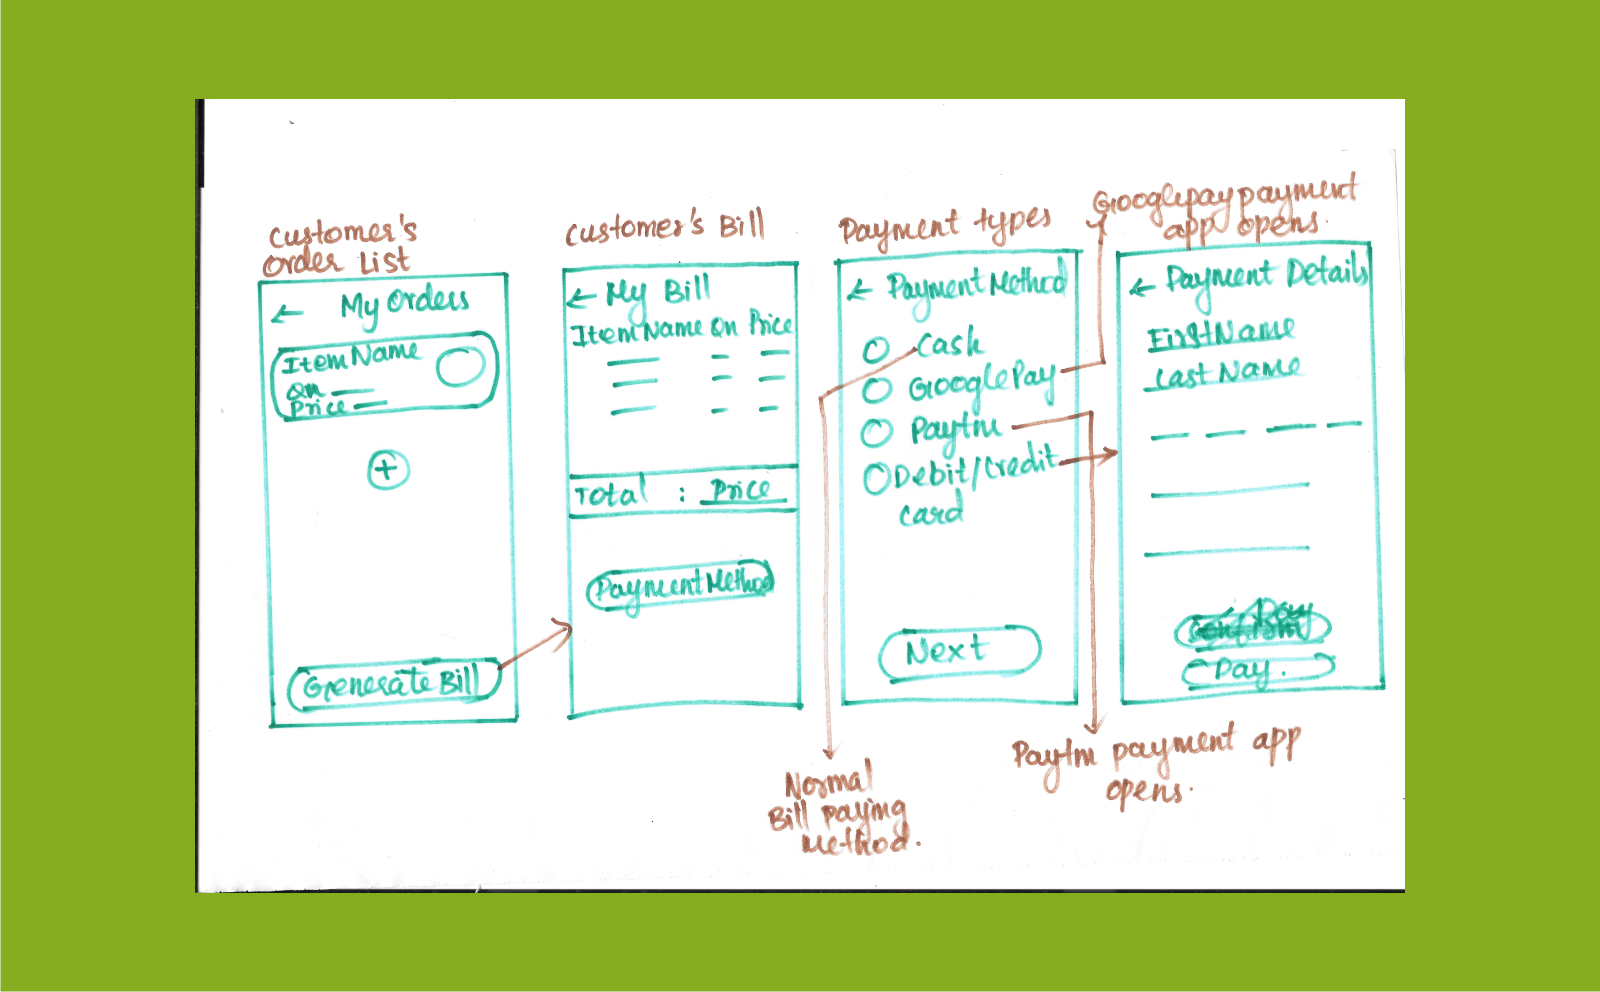 Customer's
Order List
← My Orders
Item Name
Qn
Price
+
Generate Bill
Customer's Bill
← My Bill
Item Name Qn Price
Total : Price
Payment Method
Payment types
← Payment Method
Cash
GooglePay
Paytm
Debit/Credit
Card
Next
Normal
Bill paying
Method.
Googlepay payment
app opens.
← Payment Details
First Name
Last Name
Pay.
Paytm payment app
opens.